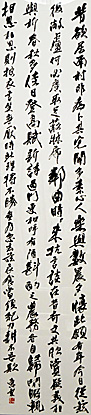 昔欲居南村非為卜其宅聞多素心人樂與數晨夕懷此頗有年今日從茲
役敝廬何必廣取足蔽床席鄰曲時時來抗言談在昔奇文共欣賞疑義相
與析春秋多佳日登高賦新詩過門更相呼有酒斟酌之農務各自歸閒暇輒
相思相思則披衣言笑無厭時此理將不勝無為忽去茲衣食當須紀力耕不吾欺